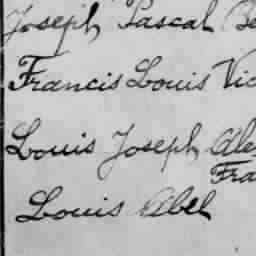 Joseph Pascal Be
Francis Louis Vic
Louis Joseph Ale
Fra
Louis Abel